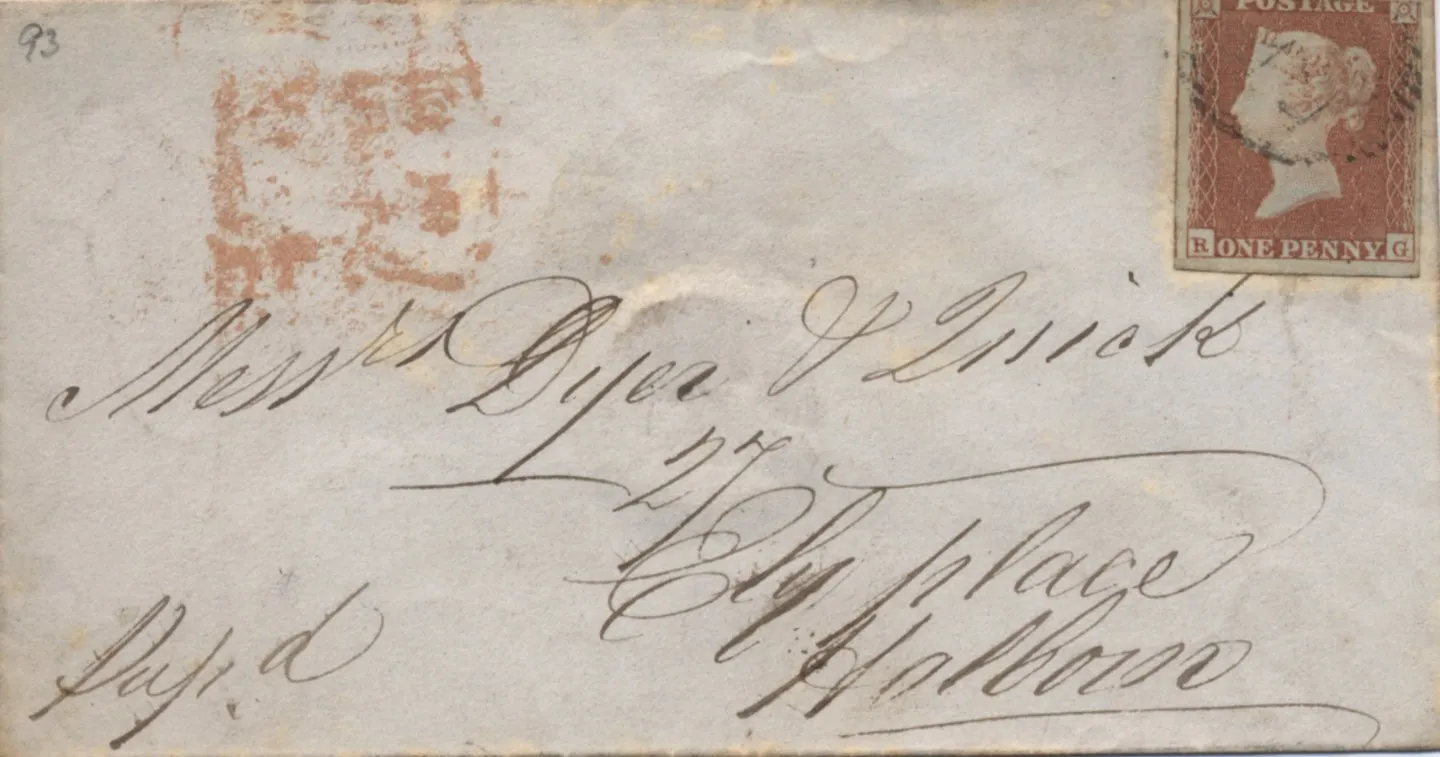 93
POSTAGE
R ONE PENNY G
Messrs Dyer & Quick
27
Ely place
Holborn